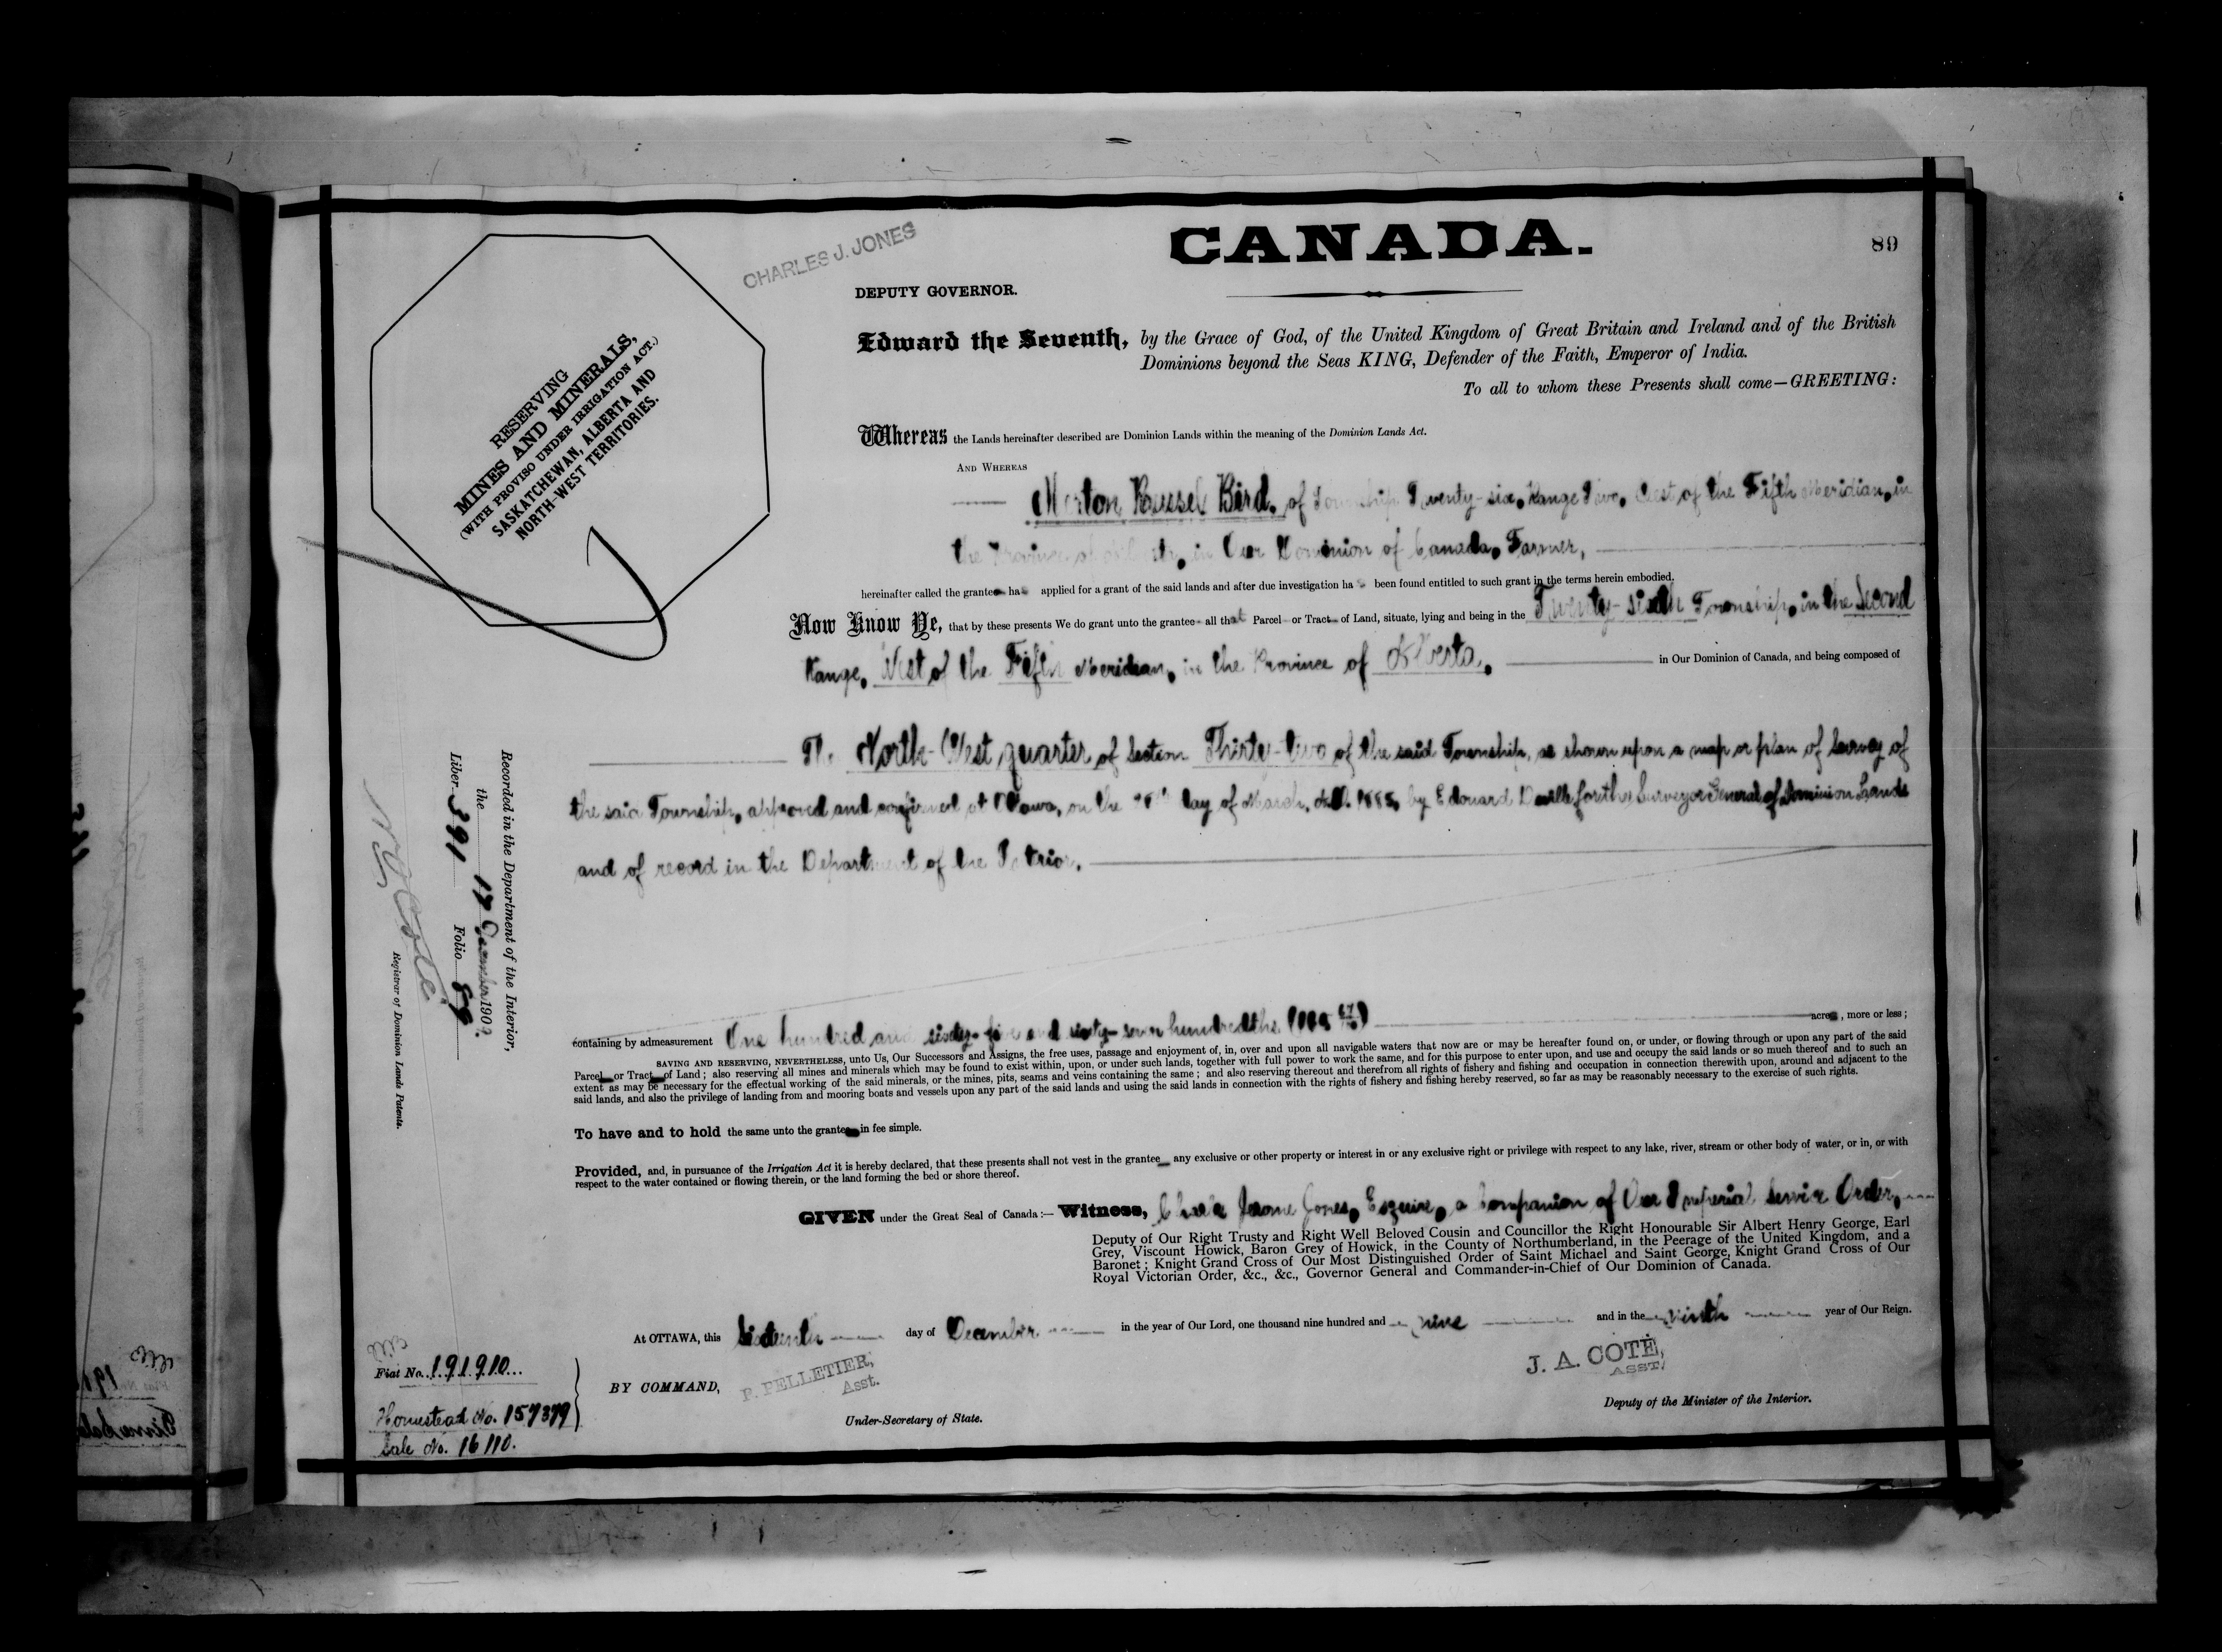 CANADA.
89
CHARLES J. JONES
DEPUTY GOVERNOR.
RESERVING
MINES AND MINERALS,
(WITH PROVISO UNDER IRRIGATION ACT.)
SASKATCHEWAN, ALBERTA AND
NORTH-WEST TERRITORIES.
Edward the Seventh, by the Grace of God, of the United Kingdom of Great Britain and Ireland and of the British
Dominions beyond the Seas KING, Defender of the Faith, Emperor of India.
To all to whom these Presents shall come—GREETING:
Whereas the Lands hereinafter described are Dominion Lands within the meaning of the Dominion Lands Act.
AND WHEREAS
Russel Bird, of Township Twenty-six, Range Two, West of the Fifth Meridian, in
the Province of in Our Dominion of Canada, Farmer,
hereinafter called the grantee has applied for a grant of the said lands and after due investigation has been found entitled to such grant in the terms herein embodied.
Now Know Ye, that by these presents We do grant unto the grantee all that Parcel or Tract of Land, situate, lying and being in the Twenty-sixth Township, in the Second
Range, West of the Fifth Meridian, in the Province of Alberta, in Our Dominion of Canada, and being composed of
The North-West quarter of Section Thirty-two of the said Township, as shown upon a map or plan of survey of
the said Township, approved and confirmed at Ottawa, on the day of March, A.D. 1885, by Edouard Deville for the Surveyor General of Dominion Lands
and of record in the Department of the Interior.
containing by admeasurement One hundred and sixty-five and sixty-seven hundredths acres, more or less;
SAVING AND RESERVING, NEVERTHELESS, unto Us, Our Successors and Assigns, the free uses, passage and enjoyment of, in, over and upon all navigable waters that now are or may be hereafter found on, or under, or flowing through or upon any part of the said
Parcel or Tract of Land; also reserving all mines and minerals which may be found to exist within, upon, or under such lands, together with full power to work the same, and for this purpose to enter upon, and use and occupy the said lands or so much thereof and to such an
extent as may be necessary for the effectual working of the said minerals, or the mines, pits, seams and veins containing the same; and also reserving thereout and therefrom all rights of fishery and fishing and occupation in connection therewith upon, around and adjacent to the
said lands, and also the privilege of landing from and mooring boats and vessels upon any part of the said lands and using the said lands in connection with the rights of fishery and fishing hereby reserved, so far as may be reasonably necessary to the exercise of such rights.
To have and to hold the same unto the grantee in fee simple.
Provided, and, in pursuance of the Irrigation Act it is hereby declared, that these presents shall not vest in the grantee any exclusive or other property or interest in or any exclusive right or privilege with respect to any lake, river, stream or other body of water, or in, or with
respect to the water contained or flowing therein, or the land forming the bed or shore thereof.
GIVEN under the Great Seal of Canada:— Witness, Charles Jerome Jones, Esquire, a Companion of Our Imperial Service Order,
Deputy of Our Right Trusty and Right Well Beloved Cousin and Councillor the Right Honourable Sir Albert Henry George, Earl
Grey, Viscount Howick, Baron Grey of Howick, in the County of Northumberland, in the Peerage of the United Kingdom, and a
Baronet; Knight Grand Cross of Our Most Distinguished Order of Saint Michael and Saint George, Knight Grand Cross of Our
Royal Victorian Order, &c., &c., Governor General and Commander-in-Chief of Our Dominion of Canada.
At OTTAWA, this Sixteenth day of December in the year of Our Lord, one thousand nine hundred and nine and in the ninth year of Our Reign.
BY COMMAND,
P. PELLETIER,
Asst.
Under-Secretary of State.
J. A. COTÉ,
ASST.
Deputy of the Minister of the Interior.
Recorded in the Department of the Interior,
the 17 December 190
Liber 391 Folio 89
Registrar of Dominion Lands Patents.
Fiat No. 191910
Homestead No. 157379
Sale No. 16110.